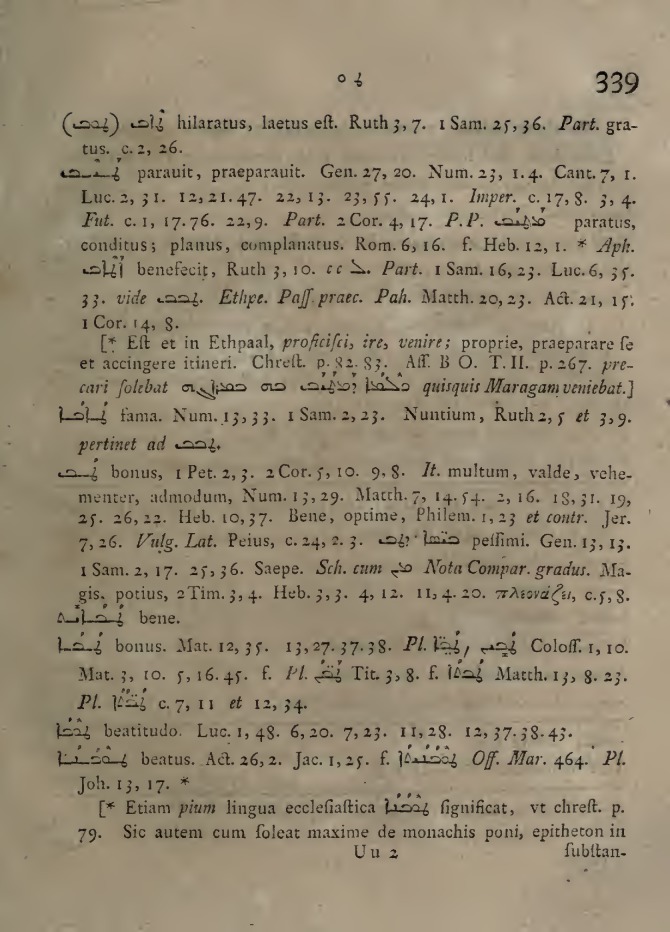 339
hilaratus, laetus eſt. Ruth 3, 7. 1 Sam. 25, 36. Part. gra-
tus. c. 2, 26.
parauit, praeparauit. Gen. 27, 20. Num. 23, 1. 4. Cant. 7, 1.
Luc. 2, 31. 12, 21. 47. 22, 13. 23, 55. 24, 1. Imper. c. 17, 8. 3, 4.
Fut. c. 1, 17. 76. 22, 9. Part. 2 Cor. 4, 17. P. P. paratus,
conditus; planus, complanatus. Rom. 6, 16. f. Heb. 12, 1. * Aph.
benefecit, Ruth 3, 10. cc ܠ. Part. 1 Sam. 16, 23. Luc. 6, 35.
33. vide Ethpe. Paſſ. praec. Pah. Matth. 20, 23. Act. 21, 15.
1 Cor. 14, 8.
[* Eſt et in Ethpaal, proficiſci, ire, venire; proprie, praeparare ſe
et accingere itineri. Chreſt. p. 82. 83. Aſſ. B O. T. II. p. 267. pre-
cari ſolebat quisquis Maragam veniebat.]
fama. Num. 13, 33. 1 Sam. 2, 23. Nuntium, Ruth 2, 5 et 3, 9.
pertinet ad
bonus, 1 Pet. 2, 3. 2 Cor. 5, 10. 9, 8. It. multum, valde, vehe-
menter, admodum, Num. 13, 29. Matth. 7, 14. 54. 2, 16. 18, 31. 19,
25. 26, 22. Heb. 10, 37. Bene, optime, Philem. 1, 23 et contr. Jer.
7, 26. Vulg. Lat. Peius, c. 24, 2. 3. peſſimi. Gen. 13, 13.
1 Sam. 2, 17. 25, 36. Saepe. Sch. cum ܡܢ Nota Compar. gradus. Ma-
gis, potius, 2 Tim. 3, 4. Heb. 3, 3. 4, 12. 11, 4. 20. πλεονάζει, c. 5, 8.
bene.
bonus. Mat. 12, 35. 13, 27. 37. 38. Pl. Coloſſ. 1, 10.
Mat. 3, 10. 5, 16. 45. f. Pl. Tit. 3, 8. f. Matth. 13, 8. 23.
Pl. c. 7, 11 et 12, 34.
beatitudo. Luc. 1, 48. 6, 20. 7, 23. 11, 28. 12, 37. 38. 43.
beatus. Act. 26, 2. Jac. 1, 25. f. Off. Mar. 464. Pl.
Joh. 13, 17. *
[* Etiam pium lingua eccleſiaſtica ſignificat, vt chreſt. p.
79. Sic autem cum ſoleat maxime de monachis poni, epitheton in
U u 2 ſubſtan-